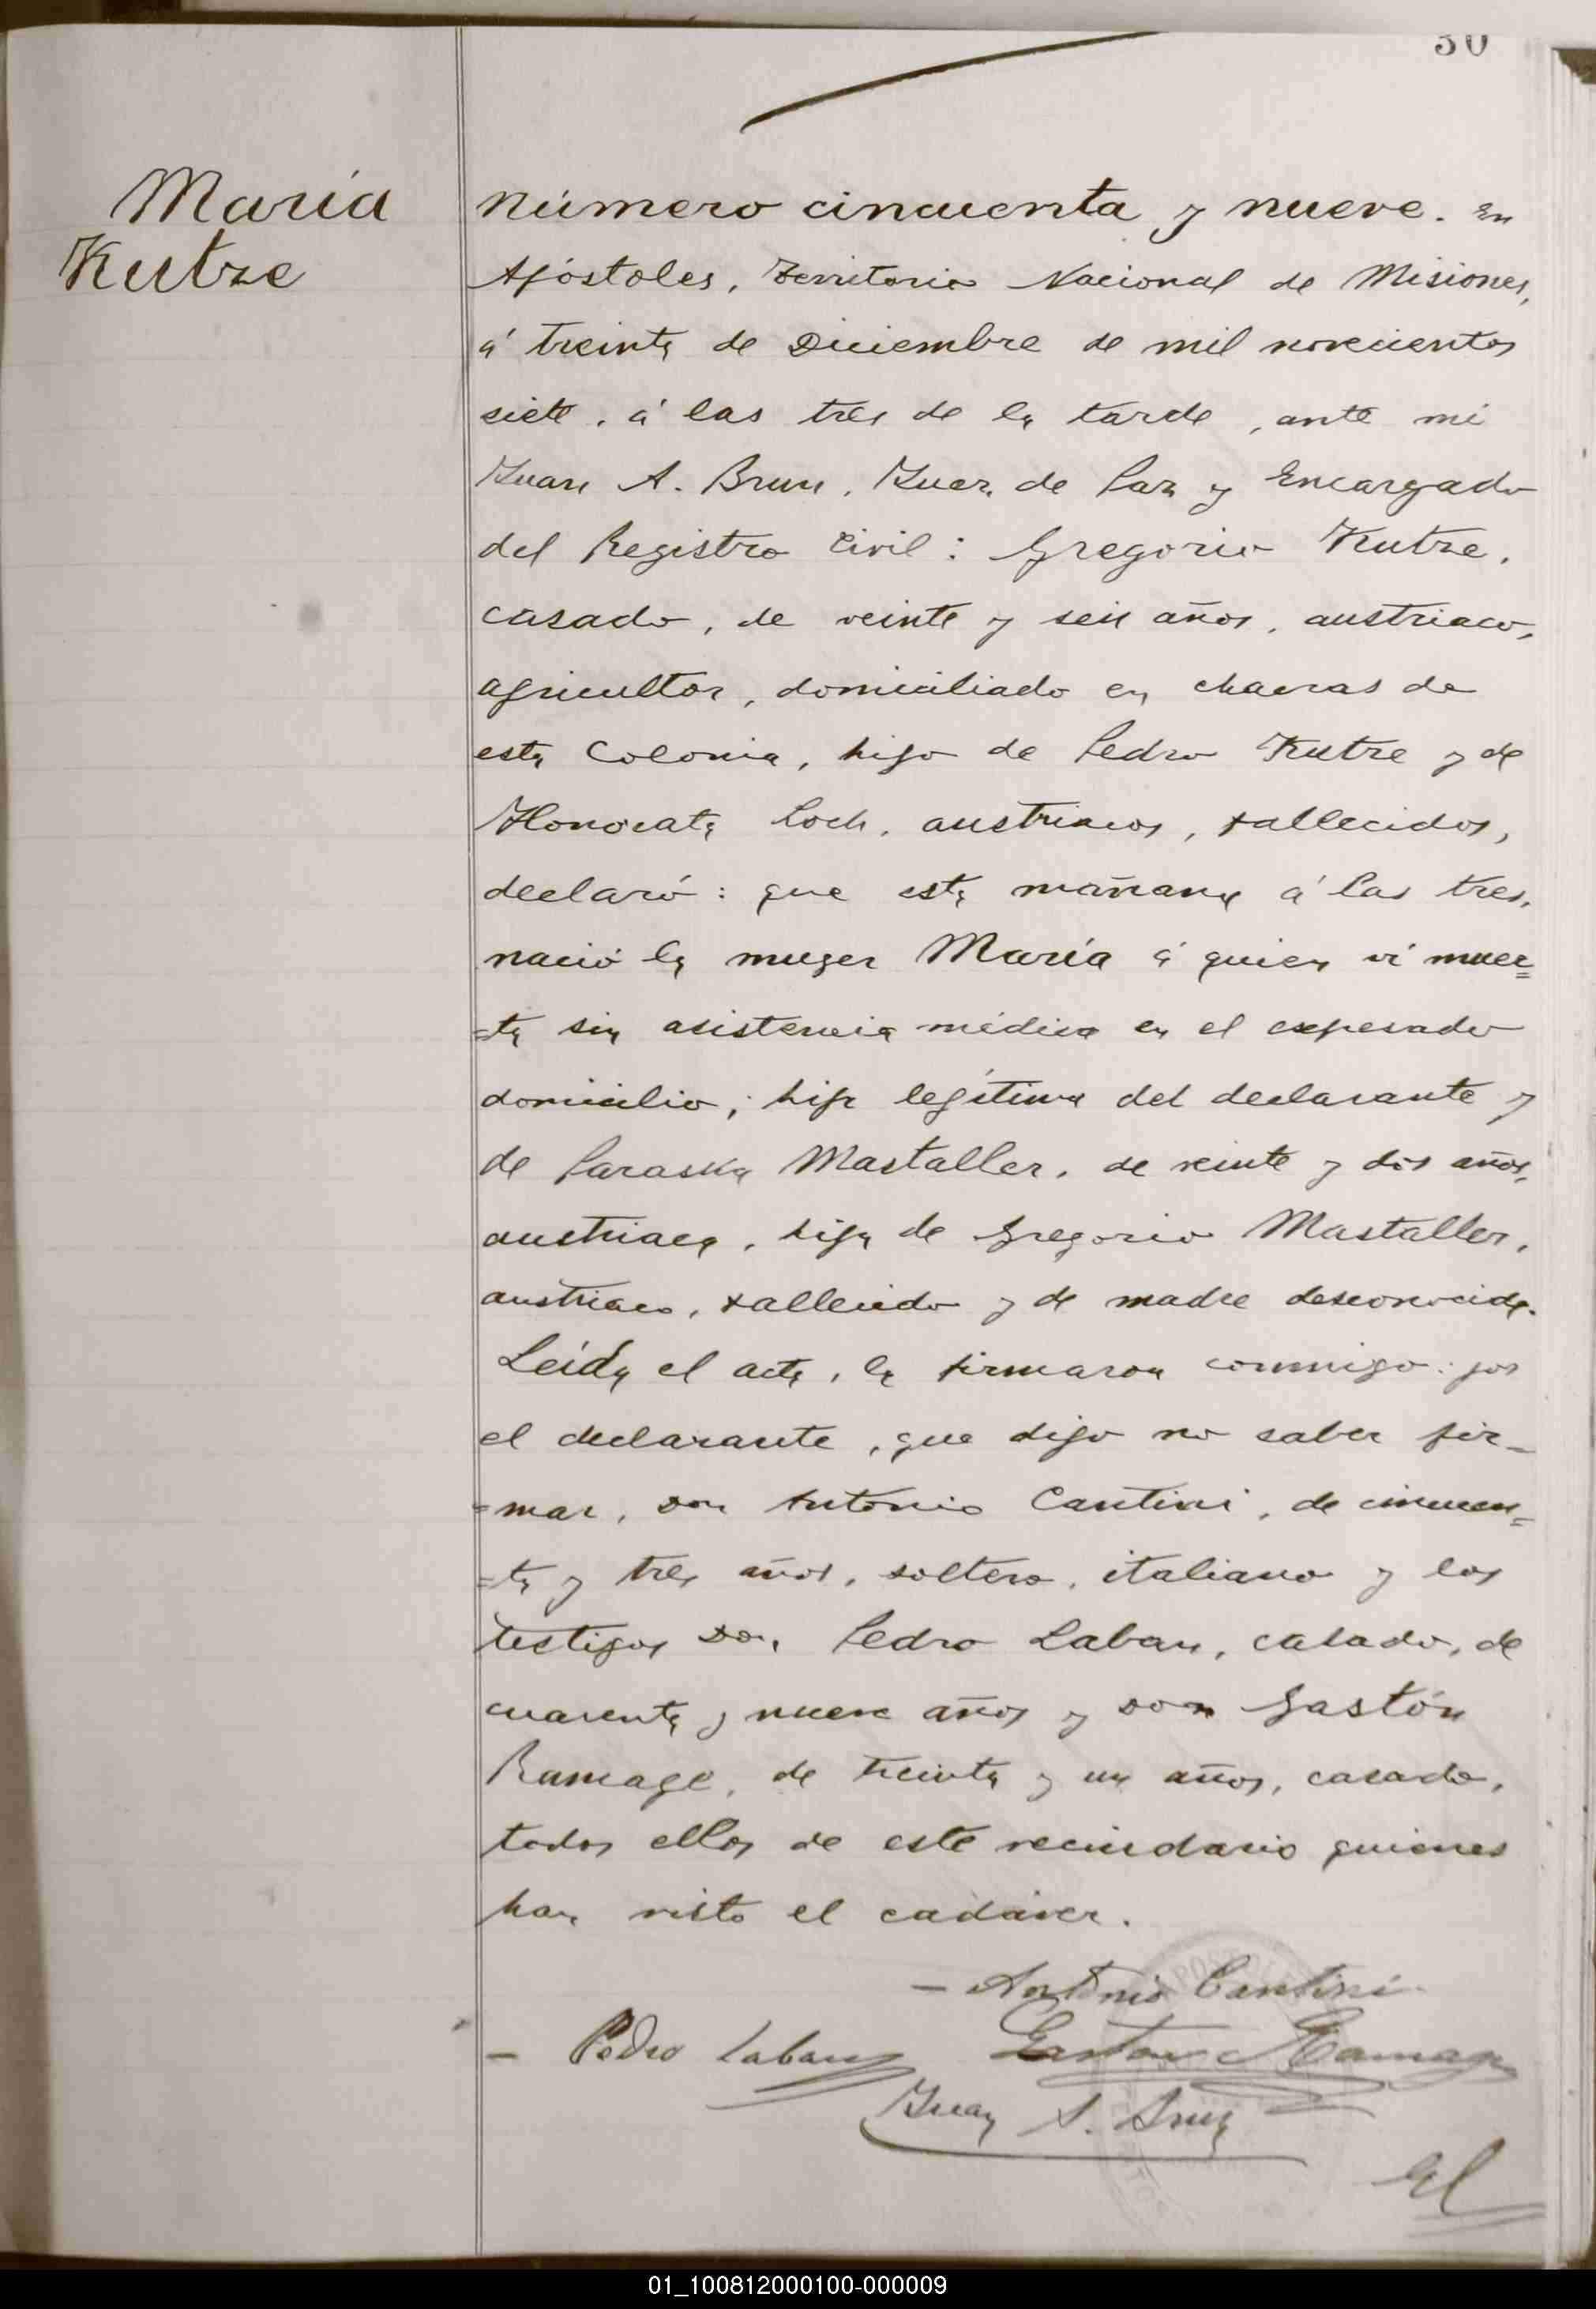 30
María
Kutze
Número cincuenta y nueve. En
Apóstoles, Territorio Nacional de Misiones,
á treinta de Diciembre de mil novecientos
siete, á las tres de la tarde, ante mi
Juan A. Brun, Juez de Paz y Encargado
del Registro Civil: Gregorio Kutze,
casado, de veinte y seis años, austriaco,
agricultor, domiciliado en chacras de
esta Colonia, hijo de Pedro Kutze y de
Honorata Loch, austriacos, fallecidos,
declaró: que esta mañana á las tres,
nació la muger María á quien ví muer=
=ta sin asistencia médica en el expresado
domicilio; hija legítima del declarante y
de Paraska Mastaller, de veinte y dos años,
austriaca, hija de Gregorio Mastaller,
austriaco, fallecido y de madre desconocida.
Leída el acta, la firmaron conmigo: por
el declarante, que dijo no saber fir-
=mar, Don Antonio Cantini, de cincuen=
=ta y tres años, soltero, italiano y los
testigos Don Pedro Laban, casado, de
cuarenta y nueve años y Don Gastón
Ramage, de treinta y un años, casado,
todos ellos de este vecindario quienes
han visto el cadáver.
- Antonio Cantini
- Pedro Laban Gaston Ramage
Juan A. Brun
El
01_100812000100-000009